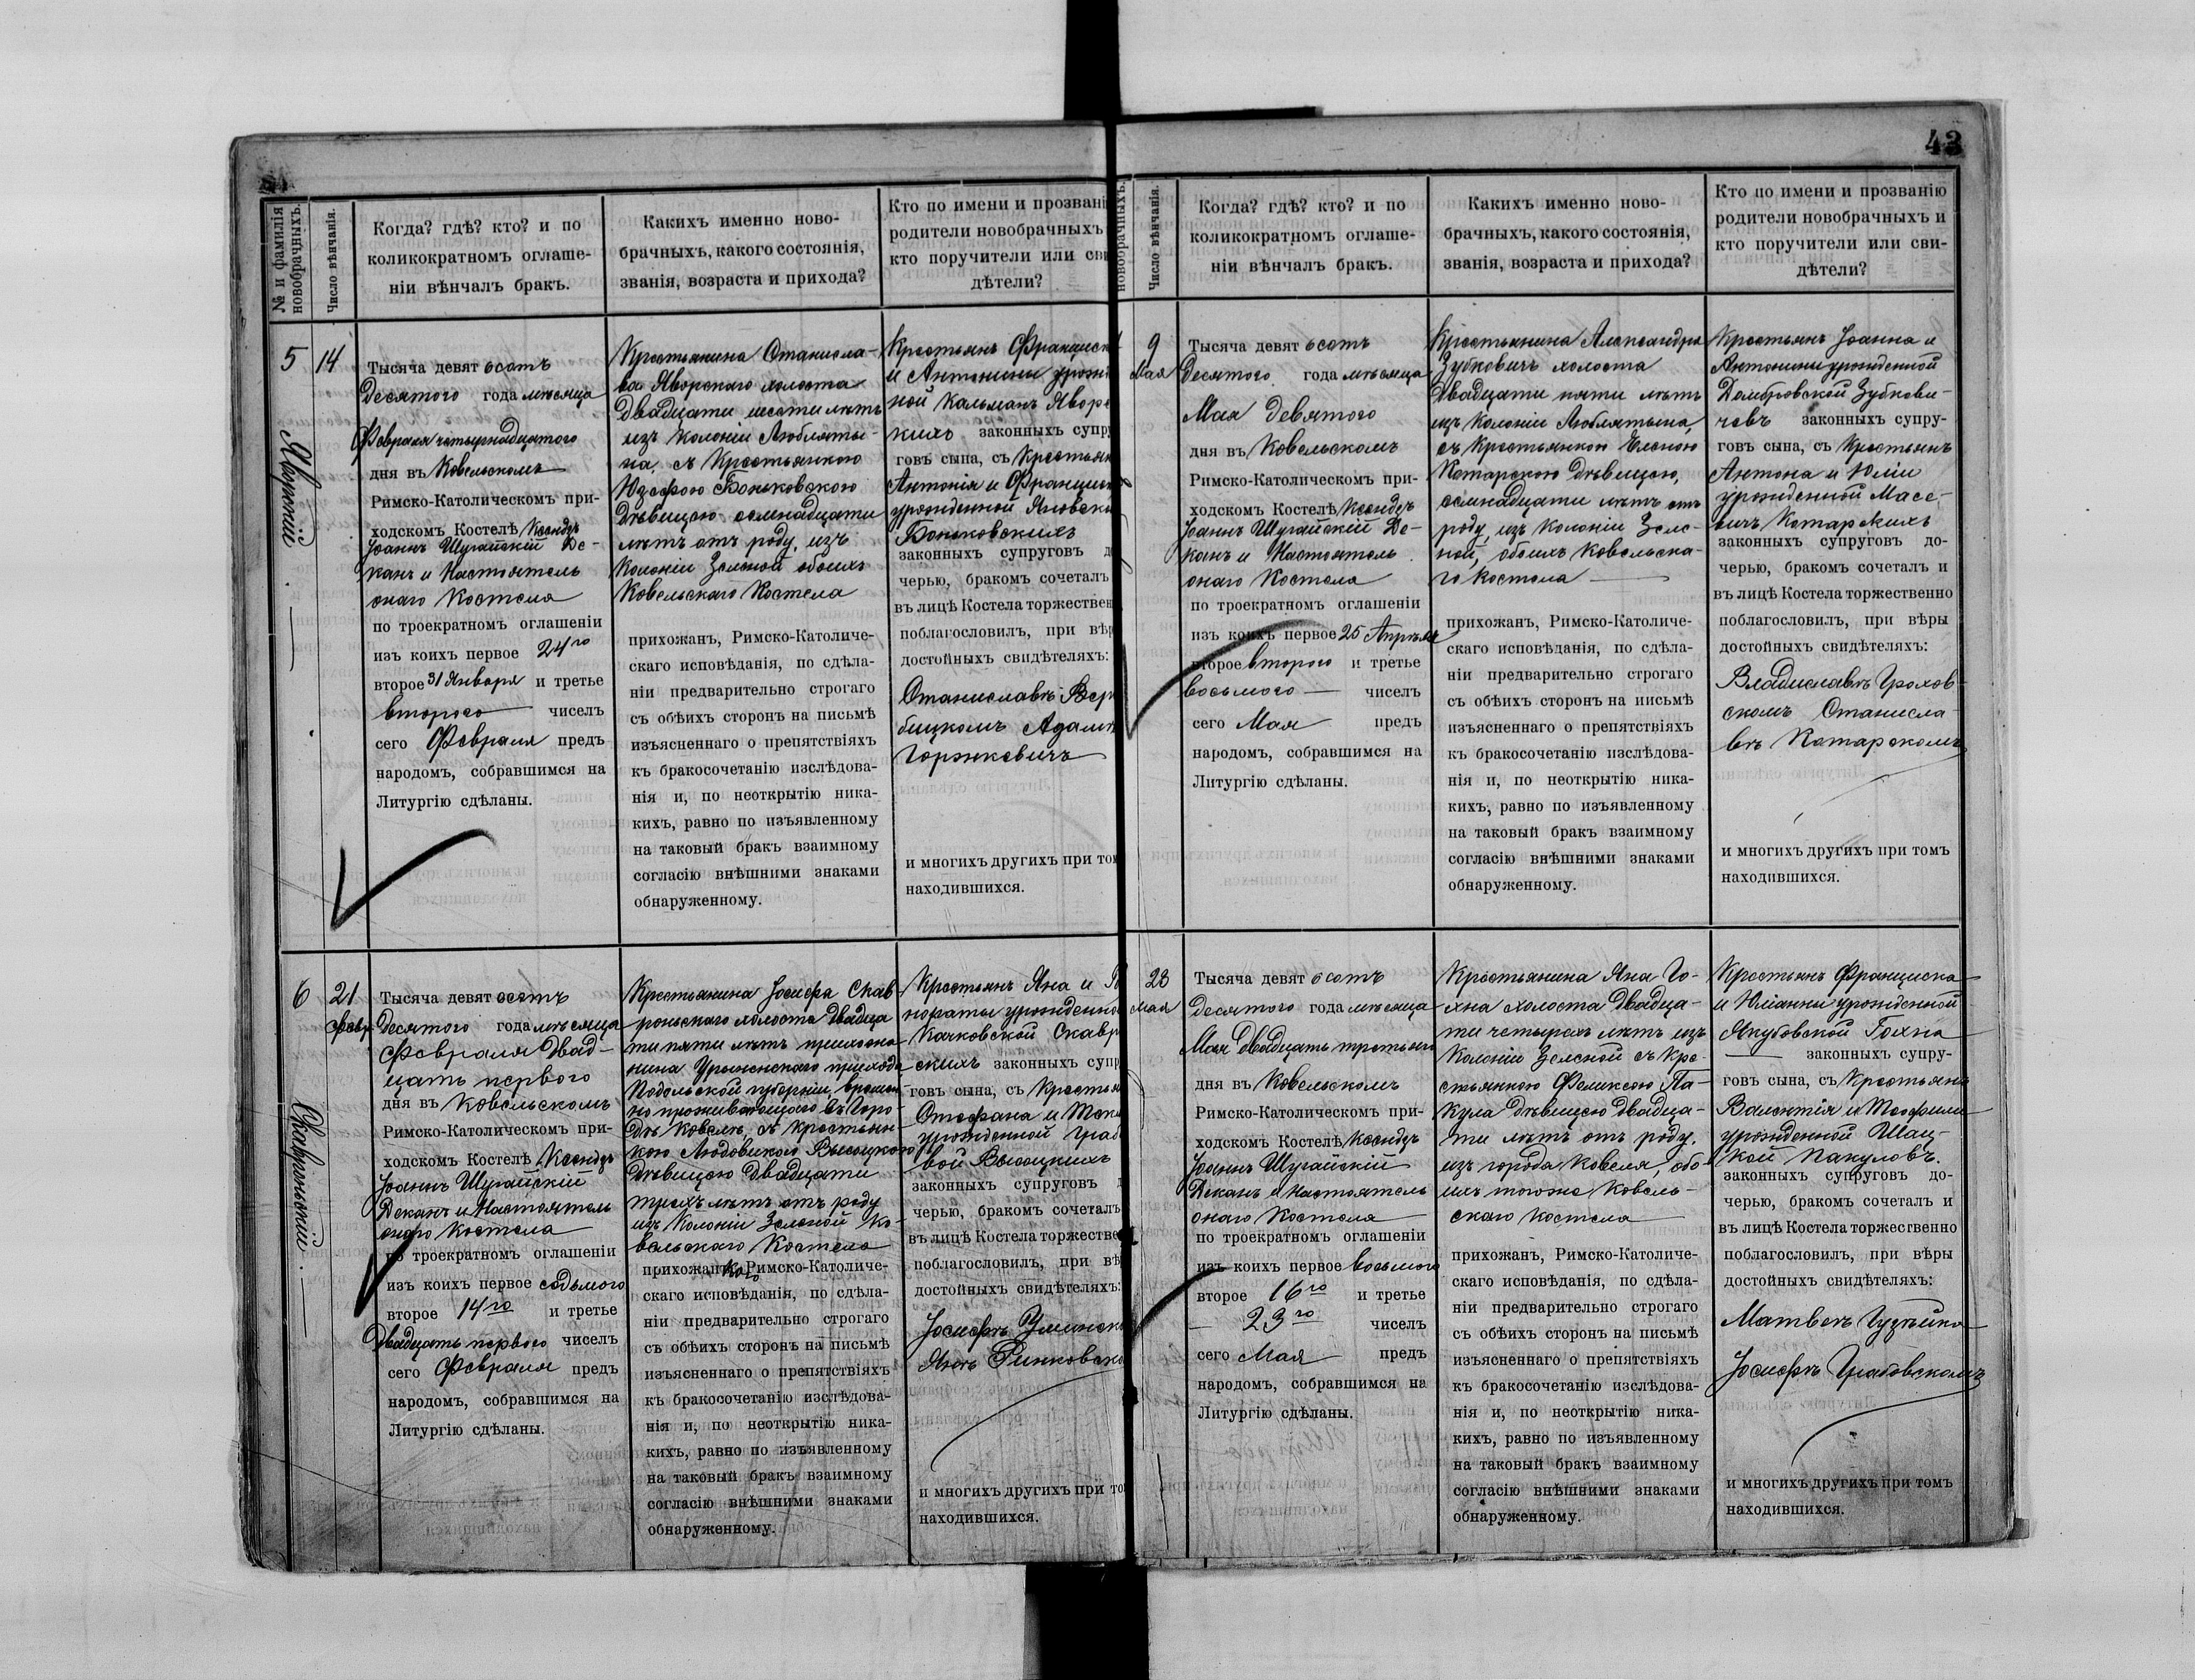 № и фамилія
новобрачныхъ.
Число вѣнчанія.
Когда? гдѣ? кто? и по
коликократномъ оглаше-
ніи вѣнчалъ бракъ.
Какихъ именно ново-
брачныхъ, какого состоянія,
званія, возраста и прихода?
Кто по имени и прозвані
родители новобрачныхъ
кто поручители или сви
дѣтели?
5
14
Яворскій.
Тысяча девятсотъ
Десятого года мѣсяца
Февраля четырнадцатого
дня въ Ковельскомъ
Римско-Католическомъ при-
ходскомъ Костелѣ Ксендзъ
Іоаннъ Шугайскій Де-
канъ и Настоятель
онаго Костела
по троекратномъ оглашеніи
изъ коихъ первое 24го
второе 31 Января и третье
второго чиселъ
сего Февраля предъ
народомъ, собравшимся на
Литургію сдѣланы.
Крестьянина Станисла-
ва Яворскаго холоста
двадцати шести лѣтъ
изъ колоніи Люблиты-
на, съ Крестьянкою
Юзефою Боньковскою
дѣвицею семнадцати
лѣтъ отъ роду, изъ
Колоніи Зеленой обоихъ
Ковельскаго Костела
прихожанъ, Римско-Католиче-
скаго исповѣданія, по сдѣла-
ніи предварительно строгаго
съ обѣихъ сторонъ на письмѣ
изъясненнаго о препятствіяхъ
къ бракосочетанію изслѣдова-
нія и, по неоткрытію ника-
кихъ, равно по изъявленному
на таковый бракъ взаимному
согласію внѣшними знаками
обнаруженному.
Крестьянъ Францишк
и Антонины урожд
ной Кальманъ Яворс
кихъ законныхъ супру
говъ сына, съ Крестьян
Антонія и Францишк
урожденной Яновско
Боньковскихъ
законныхъ супруговъ д
черью, бракомъ сочеталъ
въ лицѣ Костела торжествен
поблагословилъ, при вѣр
достойныхъ свидѣтеляхъ:
Станиславѣ Вер
бицкомъ Адамѣ
Горжкевичъ
и многихъ другихъ при том
находившихся.
6
21
Февр.
Скавроньскій.
Тысяча девятсотъ
Десятого года мѣсяца
Февраля двад-
цать первого
дня въ Ковельскомъ
Римско-Католическомъ при-
ходскомъ Костелѣ Ксендзъ
Іоаннъ Шугайскій
Деканъ и Настоятель
онаго Костела
по троекратномъ оглашеніи
изъ коихъ первое седьмого
второе 14го и третье
двадцать первого чиселъ
сего Февраля предъ
народомъ, собравшимся на
Литургію сдѣланы.
Крестьянина Іосифа Скав-
роньскаго холоста двадца
ти пяти лѣтъ прихожа-
нина прихода
Подольской губерніи, времен-
но проживающаго въ горо-
дѣ Ковелѣ, съ крестьян-
кою Людовикою Высоцкою
дѣвицею двадцати
трехъ лѣтъ отъ роду
изъ Колоніи Зеленой Ко-
вельскаго Костела
прихожанкою Римско-Католиче-
скаго исповѣданія, по сдѣла-
ніи предварительно строгаго
съ обѣихъ сторонъ на письмѣ
изъясненнаго о препятствіяхъ
къ бракосочетанію изслѣдова-
нія и, по неоткрытію ника-
кихъ, равно по изъявленному
на таковый бракъ взаимному
согласію внѣшними знаками
обнаруженному.
Крестьянъ Яна и
нораты урожденно
Качковской Скавр
скихъ законныхъ супр
говъ сына, съ Крестьян
Стефана и Текл
урожденной Граб
вой Высоцкихъ
законныхъ супруговъ д
черью, бракомъ сочеталъ
въ лицѣ Костела торжестве
поблагословилъ, при вѣ
достойныхъ свидѣтеляхъ:
Іосифѣ
Янѣ Финковско
и многихъ другихъ при то
находившихся.
43
новобрачныхъ.
Число вѣнчанія.
Когда? гдѣ? кто? и по
коликократномъ оглаше-
ніи вѣнчалъ бракъ.
Какихъ именно ново-
брачныхъ, какого состоянія,
званія, возраста и прихода?
Кто по имени и прозванію
родители новобрачныхъ и
кто поручители или сви-
дѣтели?
9
Мая
Тысяча девятсотъ
Десятого года мѣсяца
Мая девятого
дня въ Ковельскомъ
Римско-Католическомъ при-
ходскомъ Костелѣ Ксендзъ
Іоаннъ Шугайскій Де-
канъ и Настоятель
онаго Костела
по троекратномъ оглашеніи
изъ коихъ первое 25 Апрѣля
второе второго и третье
восьмого чиселъ
сего Мая предъ
народомъ, собравшимся на
Литургію сдѣланы.
Крестьянина Александра
Зубковичъ холоста
двадцати пяти лѣтъ
изъ колоніи Люблятына,
съ Крестьянкою Еленою
Котарскою дѣвицею,
семнадцати лѣтъ отъ
роду, изъ колоніи Зеле-
ной, обоихъ Ковельска-
го костела
прихожанъ, Римско-Католиче-
скаго исповѣданія, по сдѣла-
ніи предварительно строгаго
съ обѣихъ сторонъ на письмѣ
изъясненнаго о препятствіяхъ
къ бракосочетанію изслѣдова-
нія и, по неоткрытію ника-
кихъ, равно по изъявленному
на таковый бракъ взаимному
согласію внѣшними знаками
обнаруженному.
Крестьянъ Іоанна и
Антонины урожденной
Домбровской Зубкови-
човъ законныхъ супру-
говъ сына, съ Крестьянъ
Антона и Юліи
урожденной Масе-
вичъ Котарскихъ
законныхъ супруговъ до-
черью, бракомъ сочеталъ и
въ лицѣ Костела торжественно
поблагословилъ, при вѣры
достойныхъ свидѣтеляхъ:
Владиславѣ Грохов-
скомъ Станисла-
вѣ Котарскомъ
и многихъ другихъ при томъ
находившихся.
23
Мая
Тысяча девятсотъ
десятого года мѣсяца
Мая двадцать третьяго
дня въ Ковельскомъ
Римско-Католическомъ при-
ходскомъ Костелѣ Ксендзъ
Іоаннъ Шугайскій
Деканъ и Настоятель
онаго Костела
по троекратномъ оглашеніи
изъ коихъ первое восьмого
второе 16го и третье
23го чиселъ
сего Мая предъ
народомъ, собравшимся на
Литургію сдѣланы.
Крестьянина Яна Го-
хна холоста двадца-
ти четырехъ лѣтъ изъ
Колоніи Зеленой съ Кре-
стьянкою Феликсою Па-
кула дѣвицею двадца-
ти лѣтъ отъ роду,
изъ города Ковеля, обо-
ихъ тогоже Ковель-
скаго костела
прихожанъ, Римско-Католиче-
скаго исповѣданія, по сдѣла-
ніи предварительно строгаго
съ обѣихъ сторонъ на письмѣ
изъясненнаго о препятствіяхъ
къ бракосочетанію изслѣдова-
нія и, по неоткрытію ника-
кихъ, равно по изъявленному
на таковый бракъ взаимному
согласію внѣшними знаками
обнаруженному.
Крестьянъ Франциска
и Юліанны урожденной
Якубовской Гохна
законныхъ супру-
говъ сына, съ Крестьянъ
Валентія и Теофили
урожденной Шац-
кой Пакуловъ.
законныхъ супруговъ до-
черью, бракомъ сочеталъ и
въ лицѣ Костела торжественно
поблагословилъ, при вѣры
достойныхъ свидѣтеляхъ:
Матвеѣ
Іосифѣ Грабовскомъ
и многихъ другихъ при томъ
находившихся.